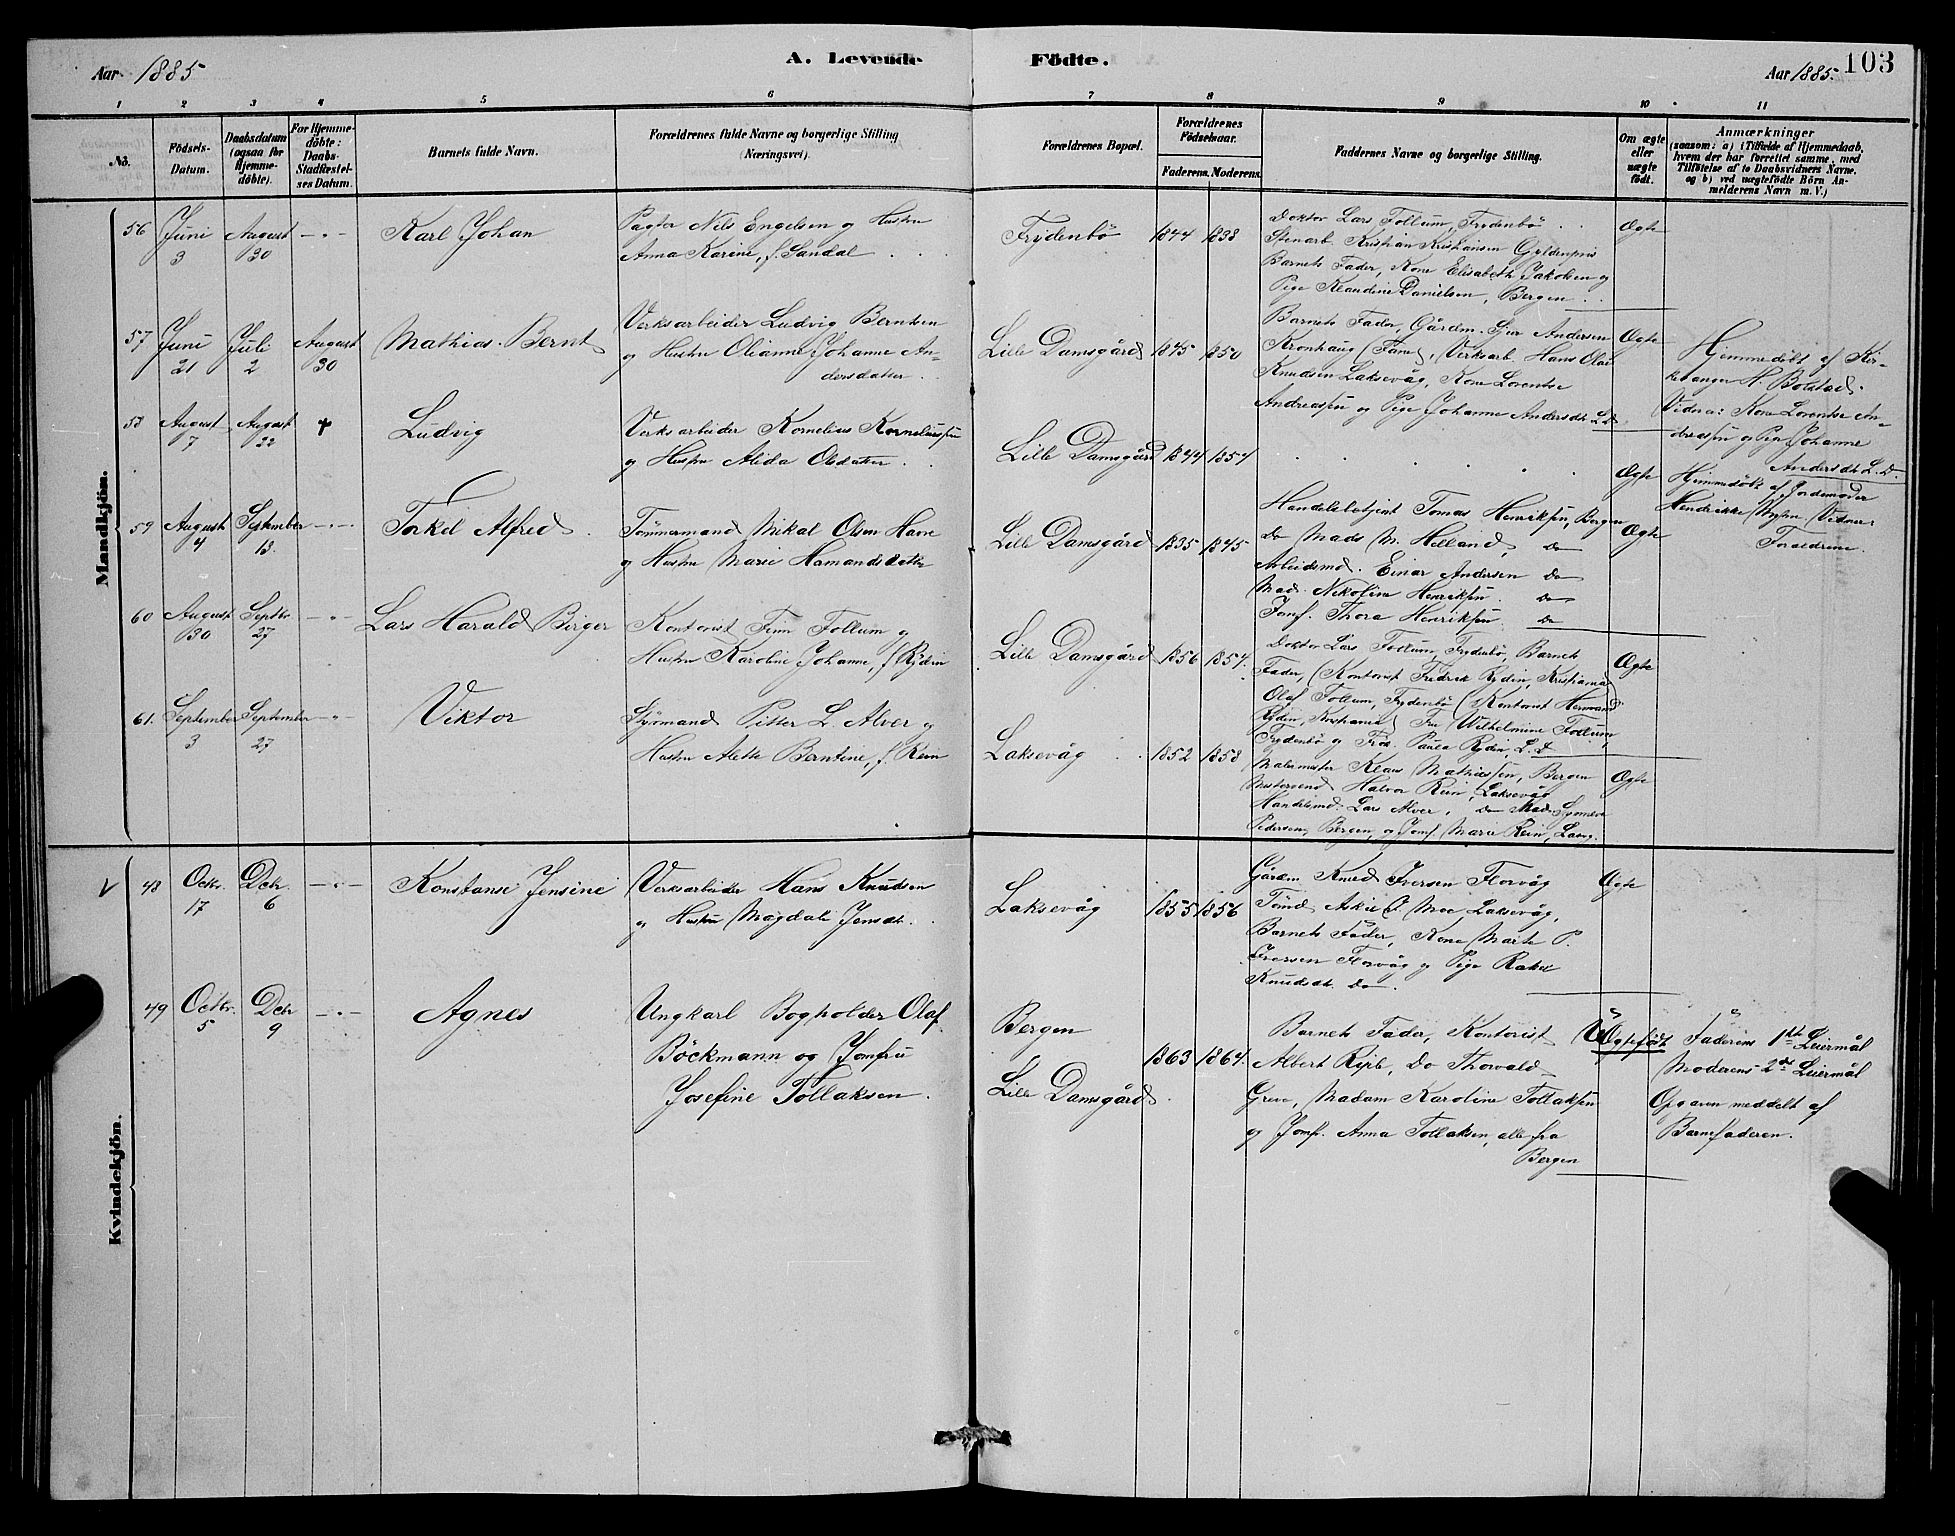 Aar 1885
A. Levende Födte.
Aar 1885. 103
1 2 3 4 5 6 7 8 9 10 11
No.
Födsels-Datum.
Daabsdatum (ogsaa for Hjemme-döbte).
For Hjemme-döbte: Daabs-Stadfæstel-ses Datum.
Barnets fulde Navn.
Forældrenes fulde Navne og borgerlige Stilling (Næringsvei).
Forældrenes Bopæl.
Forældrenes Födselsaar.
Faderens. Moderens.
Faddernes Navne og borgerlige Stilling.
Om ægte eller uægte födt.
Anmærkninger
(saasom: a) i Tilfælde af Hjemmedaab,
hvem der har forrettet samme, med
Tilföielse af to Daabsvidners Navne.
og b) ved uægtefödte Börn An-
melderens Navn m. V.)
Mandkjön.
56 Juni 3 August 30 -"- Karl Johan
Pagter Nils Engelsen og Hustru
Anna Karine, f. Sandal
Frydenbö 1844 1838
Doktor Lars Follum, Frydenbö
Stenarb. Kristian Kristiansen Gyldenpris
Barnets Fader, Kone Elisabeth Jakobsen og
Pige Klaudine Danielsen, Bergen
Ægte
57 Juni 21 Juli 2 August 30 Mathias Bernt
Verksarbeider Ludvig Berntsen
og Hustru Olianne Johanne An-
dersdatter
Lille Damsgård 1845 1850
Barnets Fader, Gårdm. Sjur Andersen
Kronhaug (Fane), Verksarb. Hans Olai
Knudsen Laksevåg, Kone Lorentse
Andreassen og Pige Johanne Andersdt. L. D.
Ægte
Hjemmedöbt af Kir-
kesanger H. Bolstad.
Vidner: Kone Lorentse An-
dreassen og Pige Johanne
Andersdt. L. D.
58 August 7 August 22 † Ludvig
Verksarbeider Kornelius Korneliussen
og Hustru Alida Olsdatter
Lille Damsgård 1844 1854
Ægte
Hjemmedöbt af Jordemoder
Hendrikke Vidner:
Foraldrene.
59 August 4 September 13. -"- Torkel Alfred
Tömmermand Mikal Olsen Havre
og Hustru Marie Hamandsdatter
Lille Damsgård 1835 1845
Handelsbetjent Tomas Henriksen, Bergen
Do Mads M. Helland, Do
Arbeidsmd. Einar Andersen Do
Mad. Nikoline Henriksen. Do
Jomf. Thora Henriksen Do
Ægte
60 August 30 Septbr. 27 -"- Lars Harald Birger
Kontorist Finn Follum og
Hustru Karoline Johanne, f. Rydin
Lille Damsgård 1856 1854.
Doktor Lars Follum, Frydenbö, Barnets
Fader, (Kontorist Fredrik Ryden, Kristiania)
Olaf Follum, Frydenbö (Kontorist Hermand
Ryden, Kristiania) Fru Wilhelmine Follum,
Frydenbö og Frök. Paula Ryden, L. D.
Ægte
61. September 3 September 27 -"- Viktor
Styrmand Petter L. Alver og
Hustru Alette Berntine, f. Rein
Laksevåg 1852 1858
Malermester Klaus Mathiesen, Bergen
Mestersvend Halvor Rein, Laksevåg
Handelsmd. Lars Alver, Do Mad.
Pedersen, Bergen, og Jomf. Marie Rein, Laksv.
Ægte
Kvindekjön.
V 48 Octbr. 17 Dcbr. 6 -"- Konstanse Jensine
Verksarbeider Hans Knudsen
og Hustru Magdali Jensdt.
Laksevåg 1855 1856
Gårdm. Knud Iversen Florvåg
Tömd. Askil J. Moe Laksevåg,
Barnets Fader, Kone Marta P.
Iversen Florvåg og Pige Rakel
Knudsdt. Do.
Ægte
49 Octbr. 5 Dcbr 9 -"- Agnes
Ungkarl Bogholder Olaf
Böckmann og Jomfru
Josefine Tollaksen.
Bergen
Lille Damsgård
1863 1864.
Barnets Fader, Kontorist
Albert Rieb, Do Thorvald
Greve, Madam Karoline Tollaksen
og Jomf. Anna Tollaksen, alle fra
Bergen
Uægtefödt
Faderens 1ste Leiermål
Moderens 2det Leiermål
Opgaven meddelt af
Barnefaderen.